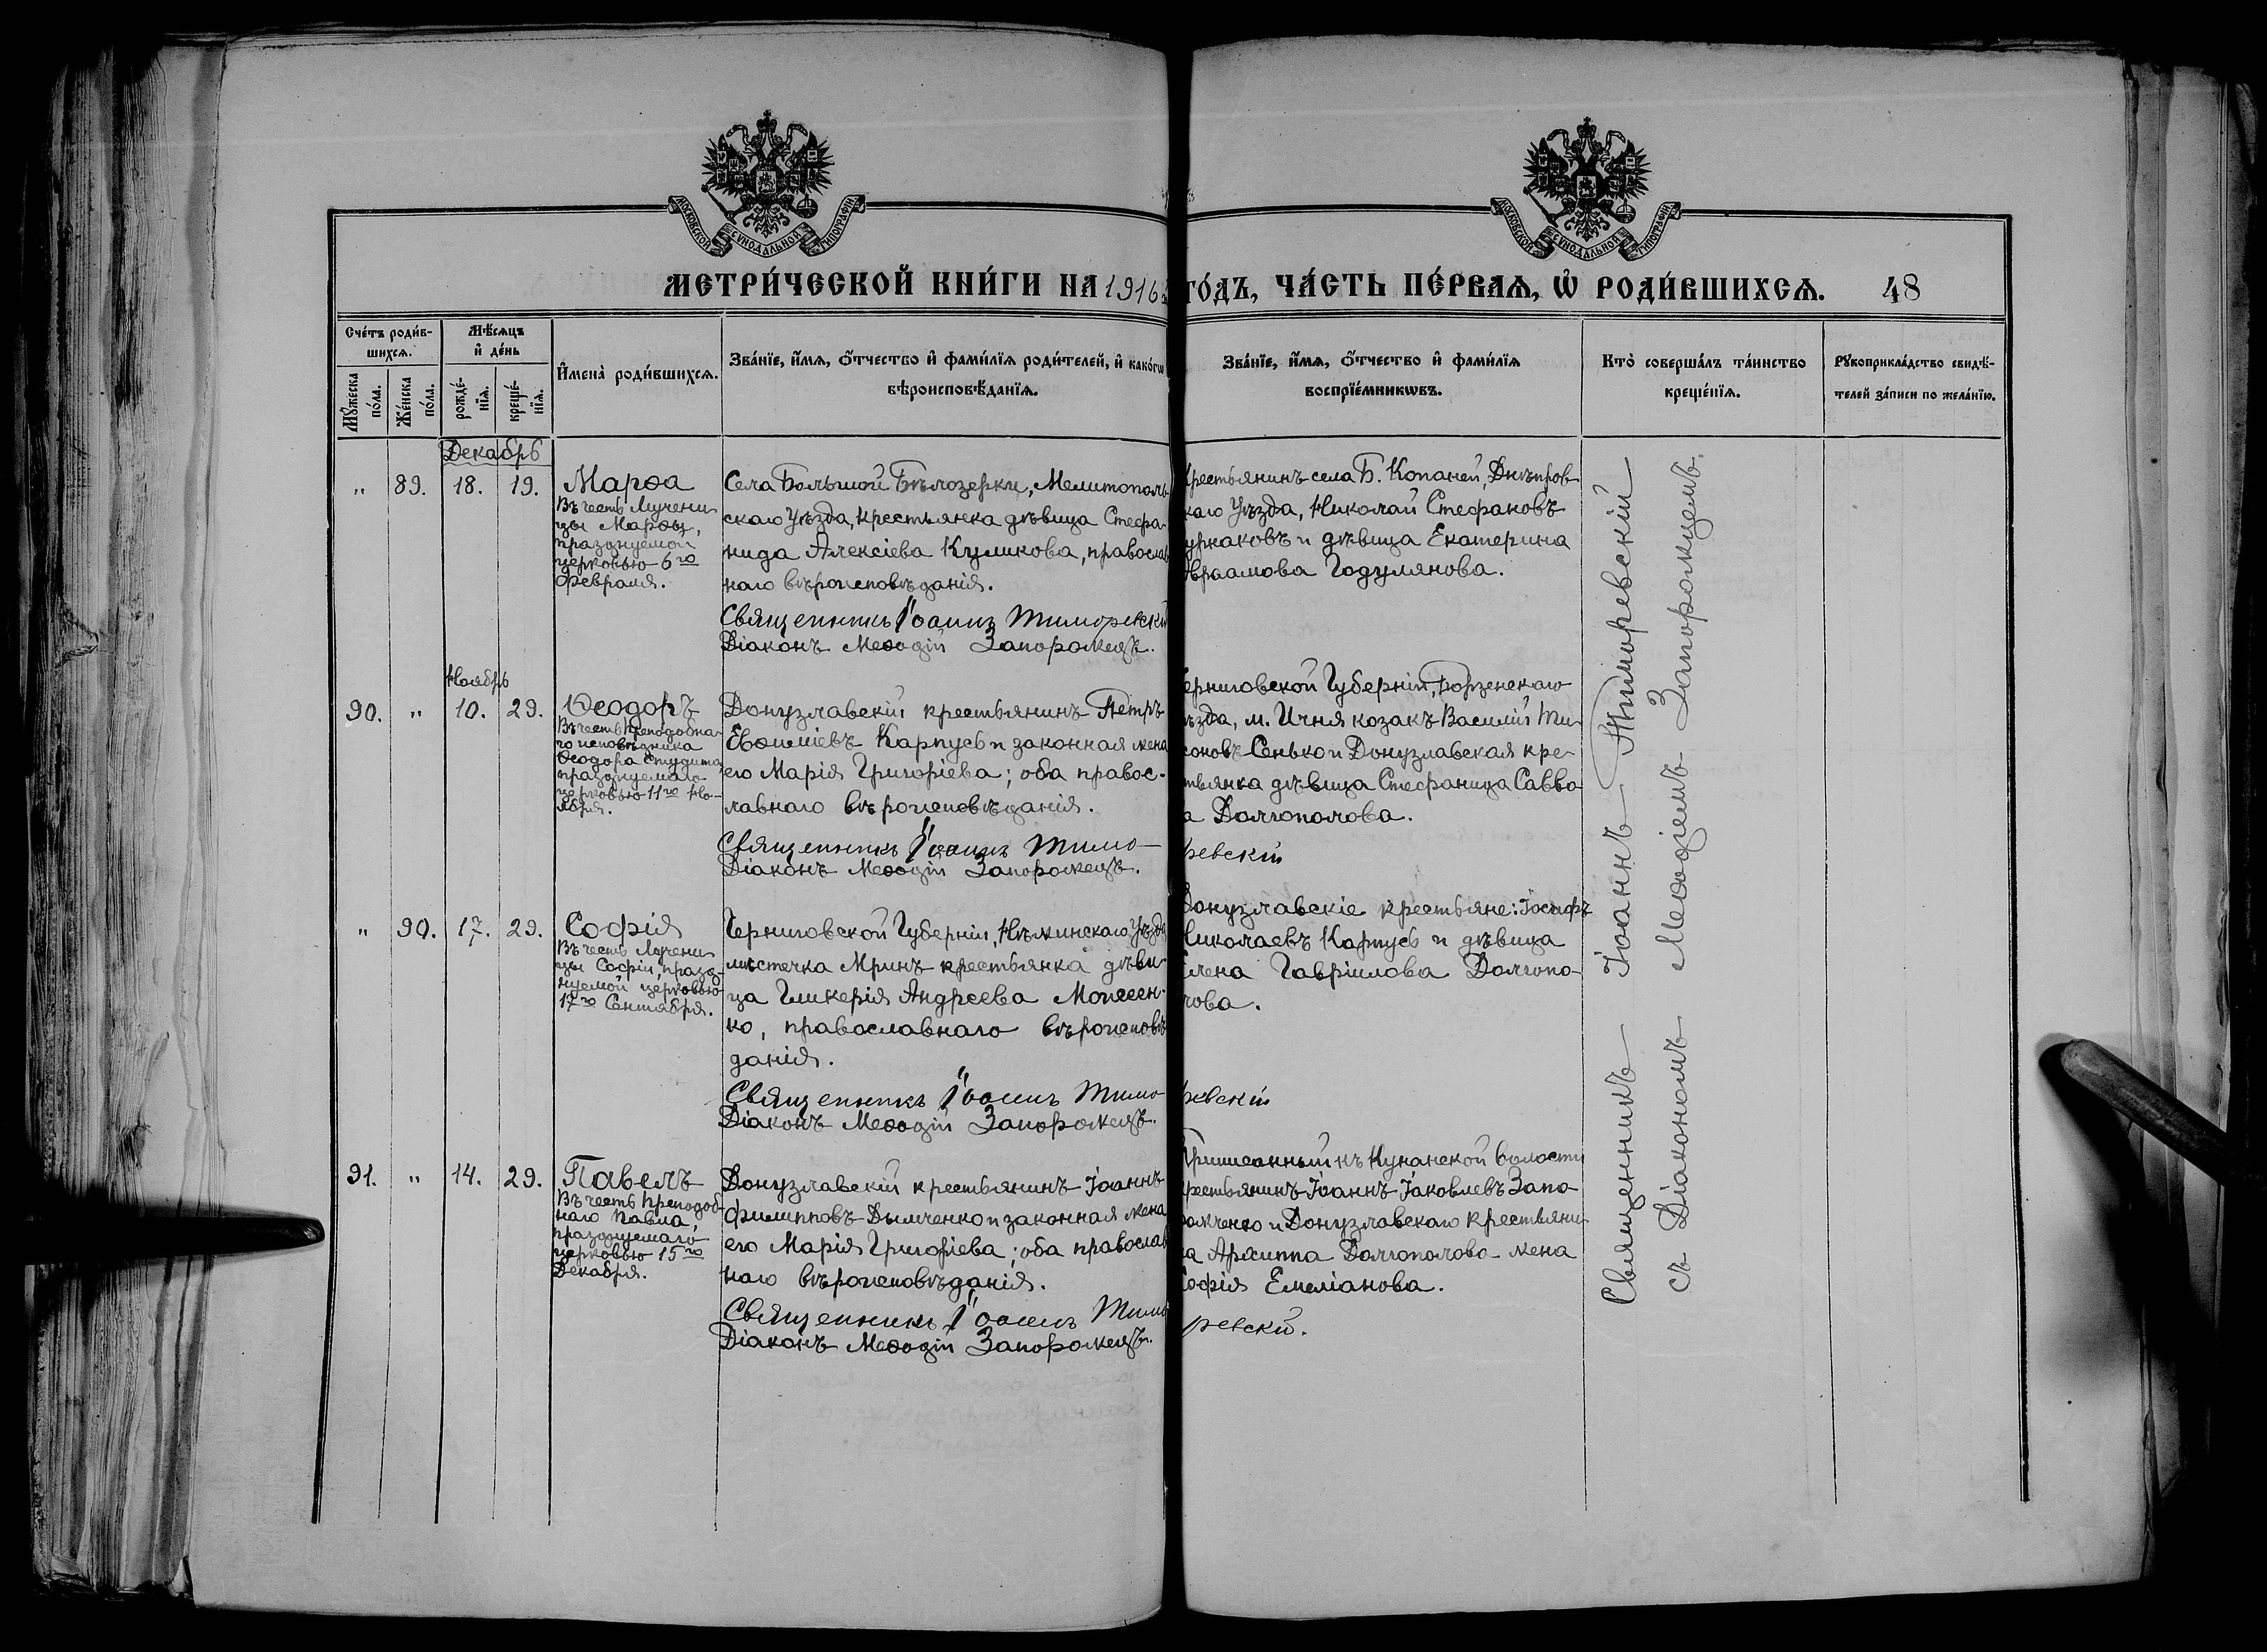 МОСКОВСКОЙ СѴНОДАЛЬНОЙ ТИПОГРАФІИ
МОСКОВСКОЙ СѴНОДАЛЬНОЙ ТИПОГРАФІИ
МЕТРИ́ЧЕСКОЙ КНИ́ГИ НА 1916
ГО́ДЪ, ЧА́СТЬ ПЕ́РВАЯ, Ѡ҆ РОДИ́ВШИХСЯ. 48
Сче́тъ роди́вшихся.
Мꙋ́жеска по́ла.
Же́нска по́ла.
Мѣ́сяцъ и҆ де́нь
рожде́нїя.
креще́нїя.
И҆мена̀ роди́вшихся.
Зва́нїе, и҆́мя, ѻ҆́тчество и҆ фами́лїя роди́телей, и҆ како́гѡ
вѣроисповѣ́данїя.
Зва́нїе, и҆́мя, ѻ҆́тчество и҆ фами́лїя
воспрїе́мникѡвъ.
Кто̀ соверша́лъ та́инство
креще́нїя.
Рꙋкоприкла́дство свидѣ́-
телей за́писи по жела́нїю.
Декабрь
" 89. 18. 19. Марѳа
Въ честь Мучени-
цы Марѳы,
празднуемой
церковью 6го
Февраля.
Села Большой Бѣлозерки, Мелитополь-
скаго Уѣзда, крестьянка дѣвица Стефа-
нида Алексіева Куликова, православ
наго вѣроисповѣданія.
Священникъ Іоаннъ Тиморевскій
Діаконъ Меѳодій Запорожецъ.
крестьянинъ села Б. Копаней, Днѣпров-
скаго Уѣзда, Николай Стефановъ
и дѣвица Екатерина
Авраамова Годулянова.
Ноябрь
90. " 10. 29. Ѳеодоръ
Въ честь Преподобна-
го исповѣдника
Ѳеодора Студита,
празднуемаго
церковью 11го Но-
ября.
Донузлавскій крестьянинъ Петръ
Евѳиміевъ Карпусь и законная жена
его Марія Григоріева; оба правос-
лавнаго вѣроисповѣданія.
Священникъ Іоаннъ Тимо-
ревскій
Діаконъ Меѳодій Запорожецъ.
Черниговской Губерніи, Борзенскаго
Уѣзда, м. Ичня козакъ Василій Ти-
моновъ Сенько и Донузлавская кре-
стьянка дѣвица Стефанида Савво-
ва Долгополова.
" 90. 17. 29. Софія
Въ честь Мучени-
цы Софіи, празд-
нуемой церковью
17го Сентября.
Черниговской Губерніи, Нѣжинскаго Уѣзда
мѣстечка Мринъ крестьянка дѣви-
ца Гликерія Андреева Моисеен-
ко, православнаго вѣроисповѣ
данія.
Священникъ Іоаннъ Тимо-
ревскій
Діаконъ Меѳодій Запорожецъ.
Донузлавскіе крестьяне: Іосифъ
Николаевъ Карпусь и дѣвица
Елена Гавріилова Долгопо-
лова.
91. " 14. 29. Павелъ
Въ честь Преподоб-
наго Павла,
празднуемаго
церковью 15го
Декабря.
Донузлавскій крестьянинъ Іоаннъ
Филипповъ Дымченко и законная жена
его Марія Григоріева; оба православ
наго вѣроисповѣданія.
Священникъ Іоаннъ Тимо
ревскій.
Діаконъ Меѳодій Запорожецъ.
Приписанный къ Кунанской волости
крестьянинъ Іоаннъ Іаковлевъ Запо-
рожченко и Донузлавскаго крестьяни-
на Архиппа Долгополово жена
Софія Емеліанова.
Священникъ Іоаннъ Тиморевскій
съ Діакономъ Меѳодіемъ Запорожцемъ.